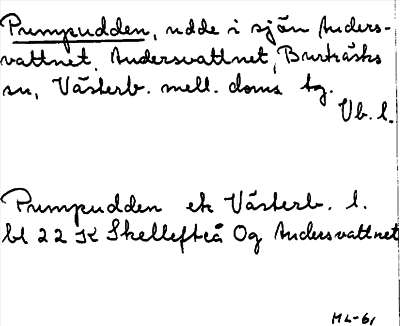 Pumpudden, udde i sjön Anders-
vattnet, Andersvattnet, Burträsks
sn, Västerb. mell. doms tg.
Vb. l.
Pumpudden ek Västerb. l.
bl 22 K Skellefteå Og Andersvattnet
ML-61